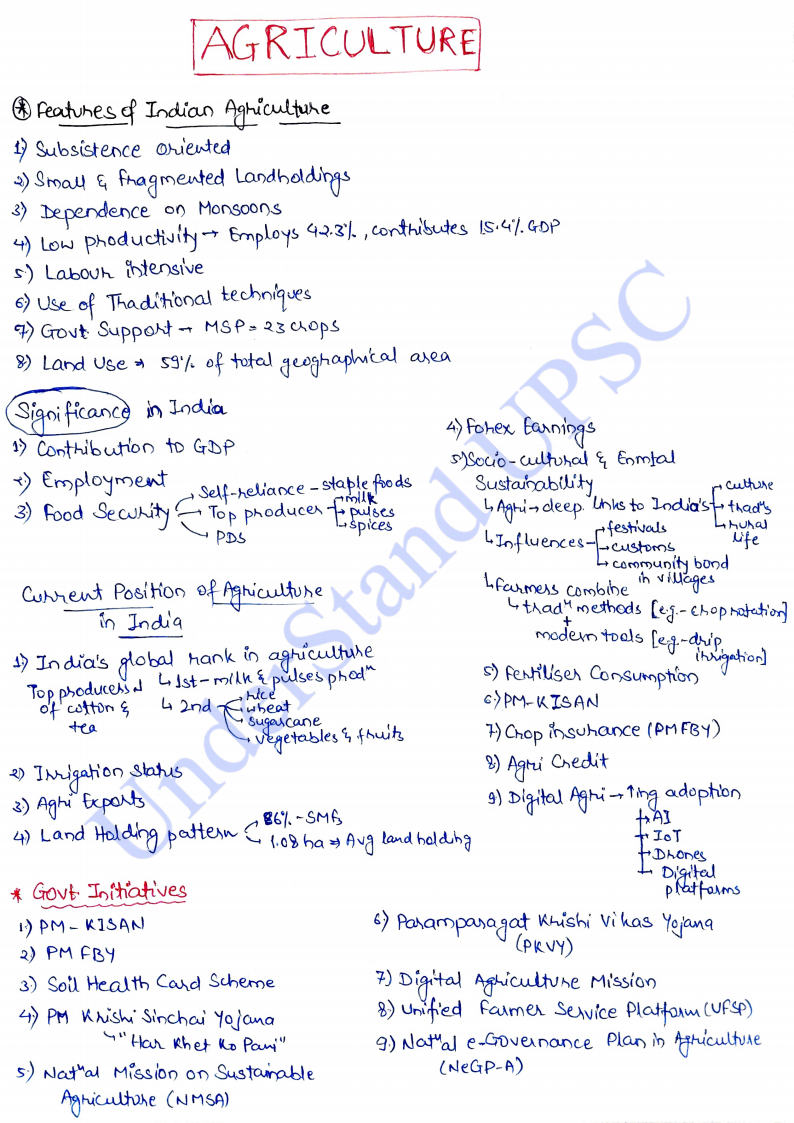 AGRICULTURE
Features of Indian Agriculture
1) Subsistence oriented
2) Small & fragmented Landholdings
3) Dependence on Monsoons
4) Low productivity → Employs 42.3%, contributes 15.4% GDP
5) Labour intensive
6) Use of Traditional techniques
7) Govt Support → MSP = 23 crops
8) Land Use → 59% of total geographical area
Significance in India
1) Contribution to GDP
2) Employment
3) Food Security
Self-reliance – staple foods
Top producer
milk
pulses
spices
PDS
4) Forex Earnings
5) Socio-cultural & Enmtal
Sustainability
↳ Agri → deep links to India's
culture
trad's
rural
life
↳ Influences
festivals
customs
community bond
in villages
↳ Farmers combine
↳ tradⁿ methods [e.g.- crop rotation]
+
modern tools [e.g.- drip
irrigation]
Current Position of Agriculture
in India
1) India's global rank in agriculture
Top producers
of cotton &
tea
↳ 1st – milk & pulses prodⁿ
↳ 2nd
rice
wheat
sugarcane
vegetables & fruits
2) Irrigation Status
3) Agri Exports
4) Land Holding pattern
86% - SMFs
1.08 ha ⇒ Avg land holding
5) Fertiliser Consumption
6) PM-KISAN
7) Crop insurance (PMFBY)
8) Agri Credit
9) Digital Agri → ↑ing adoption
AI
IoT
Drones
Digital
platforms
* Govt. Initiatives
1.) PM – KISAN
2) PM FBY
3) Soil Health Card Scheme
4) PM Krishi Sinchai Yojana
↳ "Har Khet Ko Pani"
5.) Natⁿal Mission on Sustainable
Agriculture (NMSA)
6) Paramparagat Krishi Vikas Yojana
(PKVY)
7) Digital Agriculture Mission
8.) Unified Farmer Service Platform (UFSP)
9.) Natⁿal e-Governance Plan in Agriculture
(NeGP-A)
UnderStand UPSC